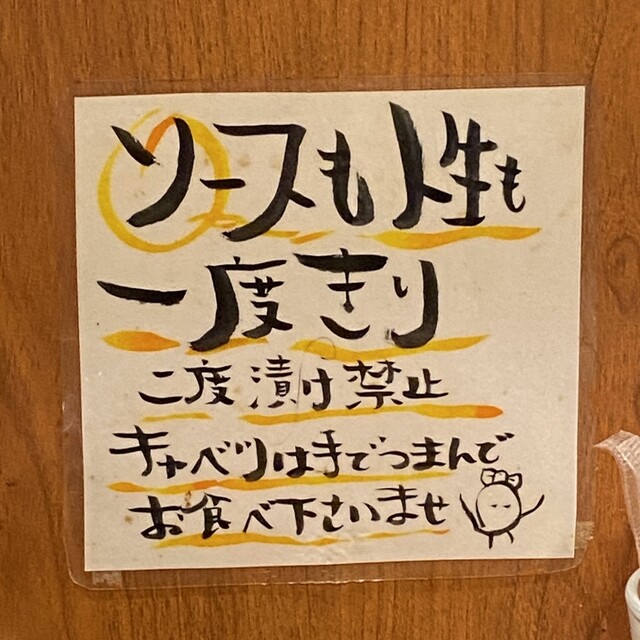 ソースも人生も
一度きり
二度漬け禁止
キャベツは手でつまんで
お食べ下さいませ